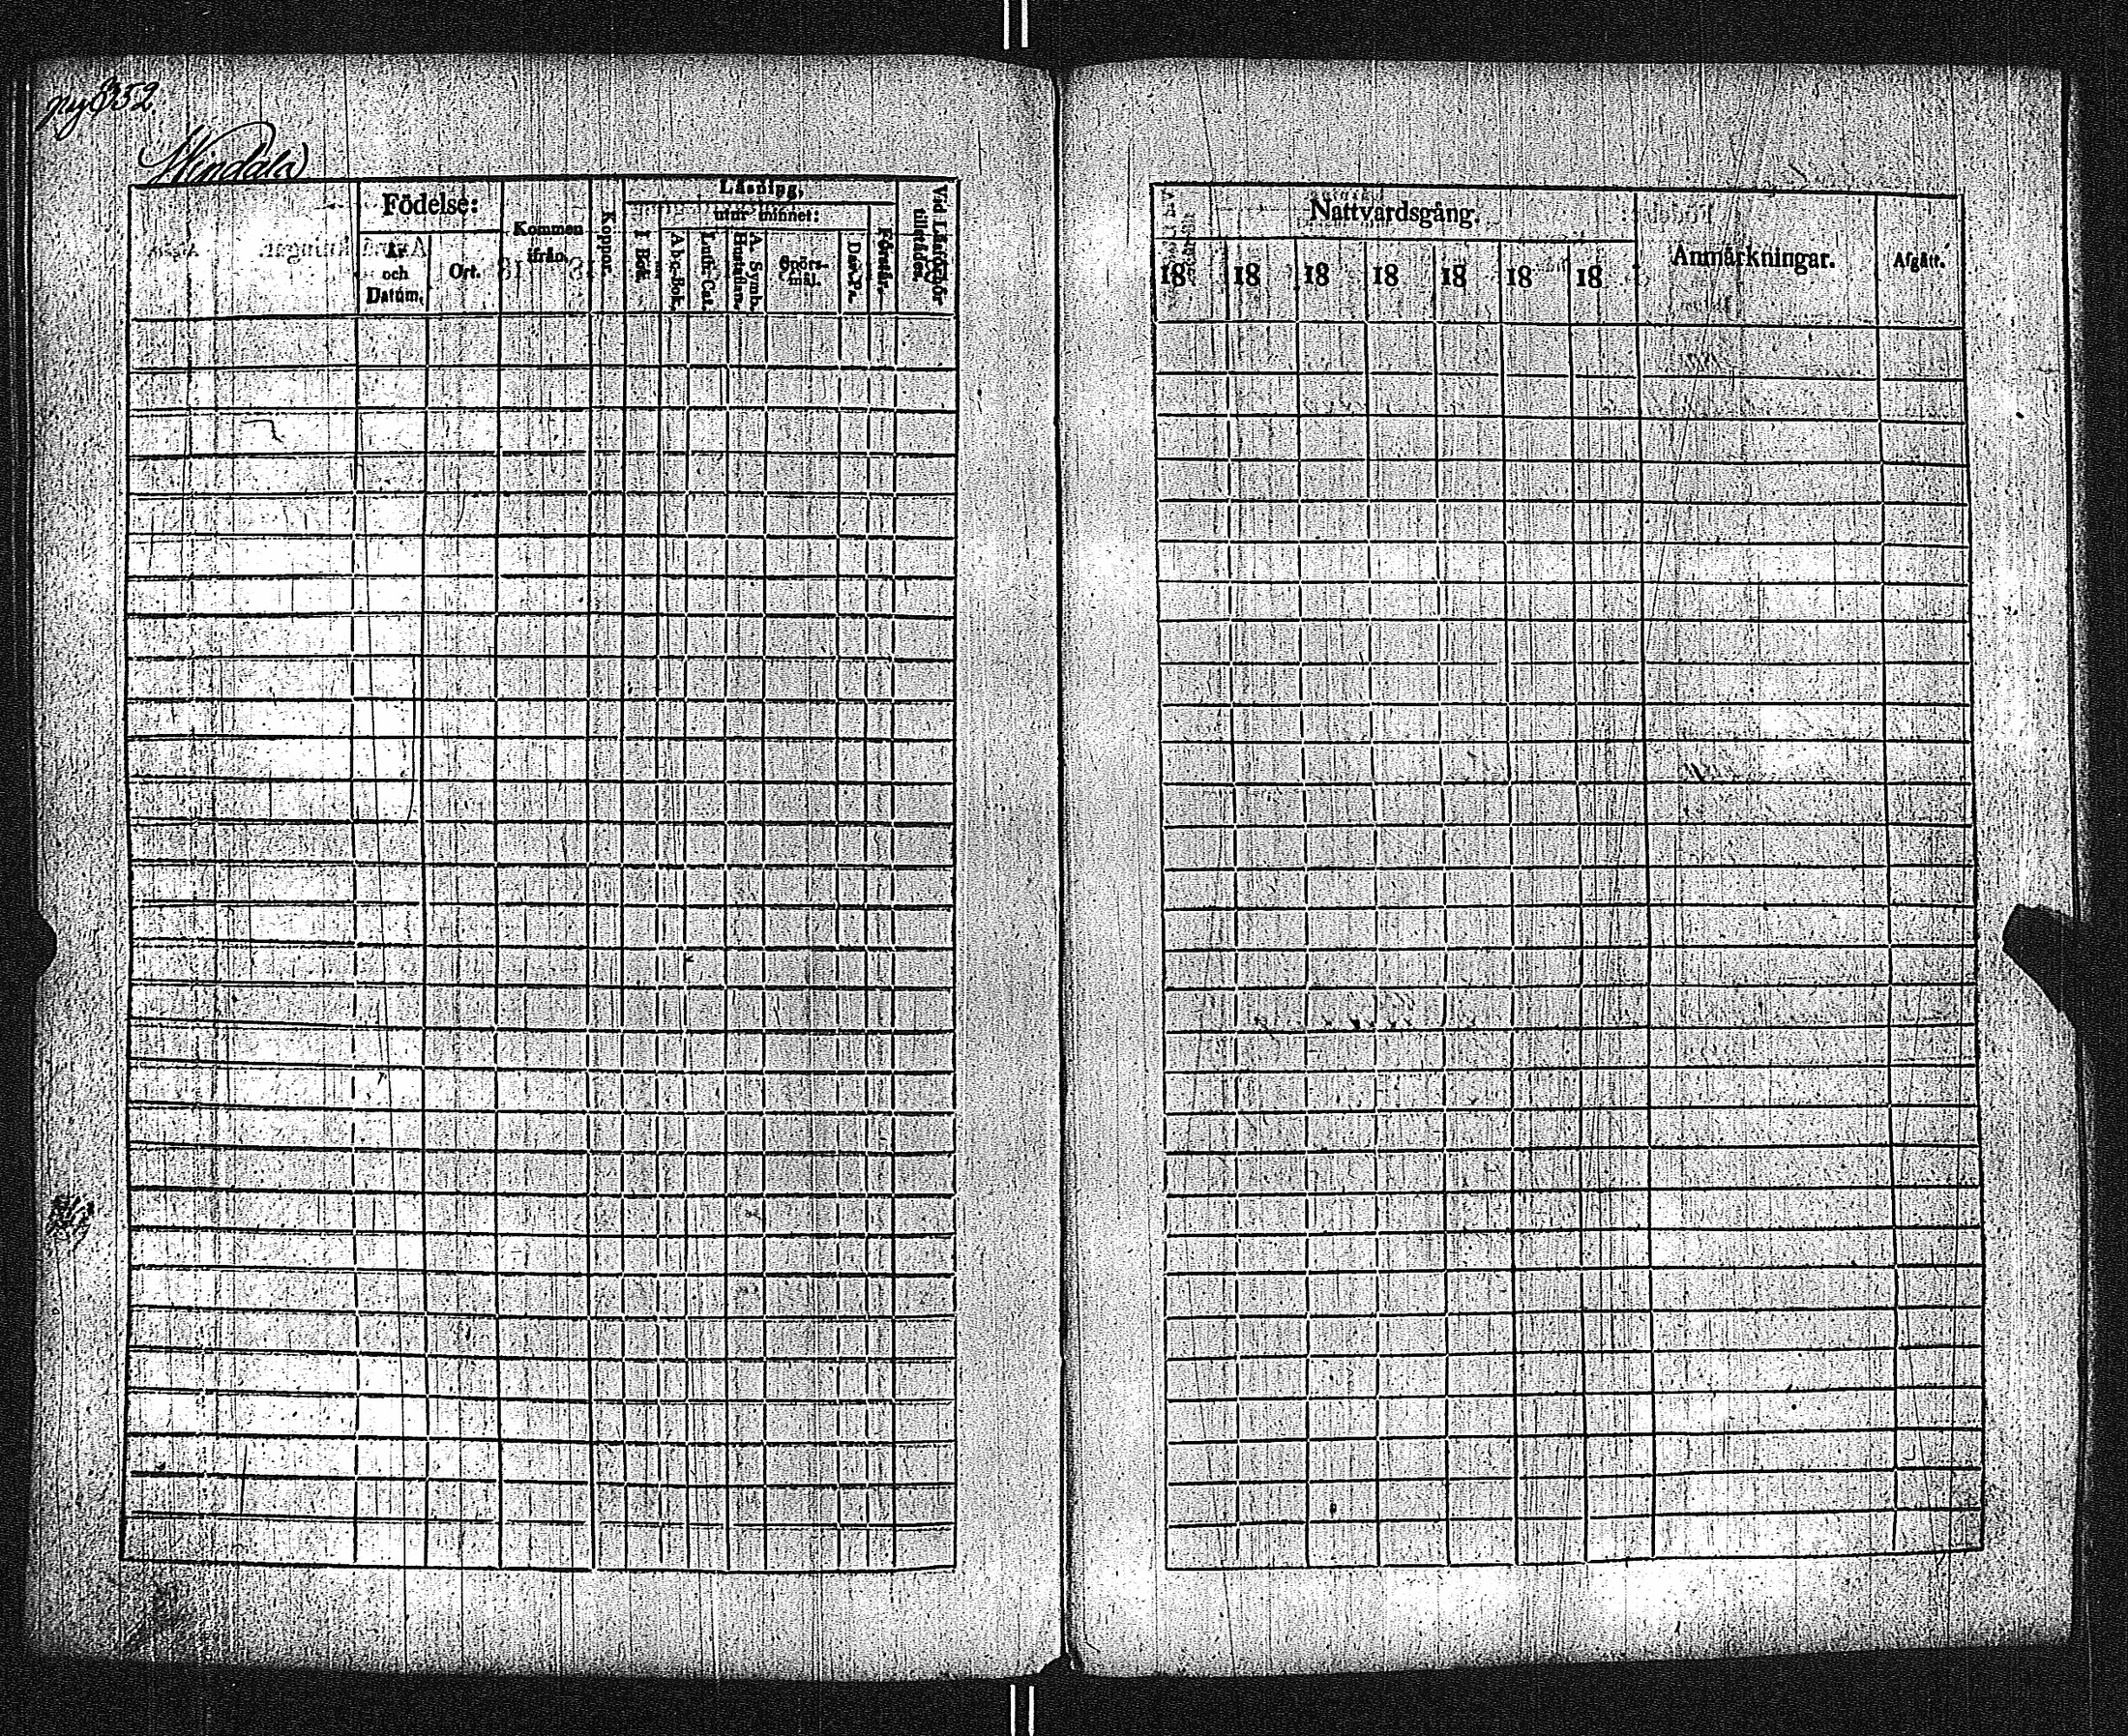 352
Windala
Födelse:
År
och
Datum.
Ort.
Kommen
ifrån.
Koppor.
Läsning,
utur minnet:
I Bok.
Abc-Bok.
Luth. Cat.
A. Symb.
Hustaflan.
Spörs-
mål.
Dav. Ps.
Förstår.
Vid Läsförhör
tillstädes.
Nattvardsgång.
18 18 18 18 18 18 18
Anmärkningar.
Afgått.